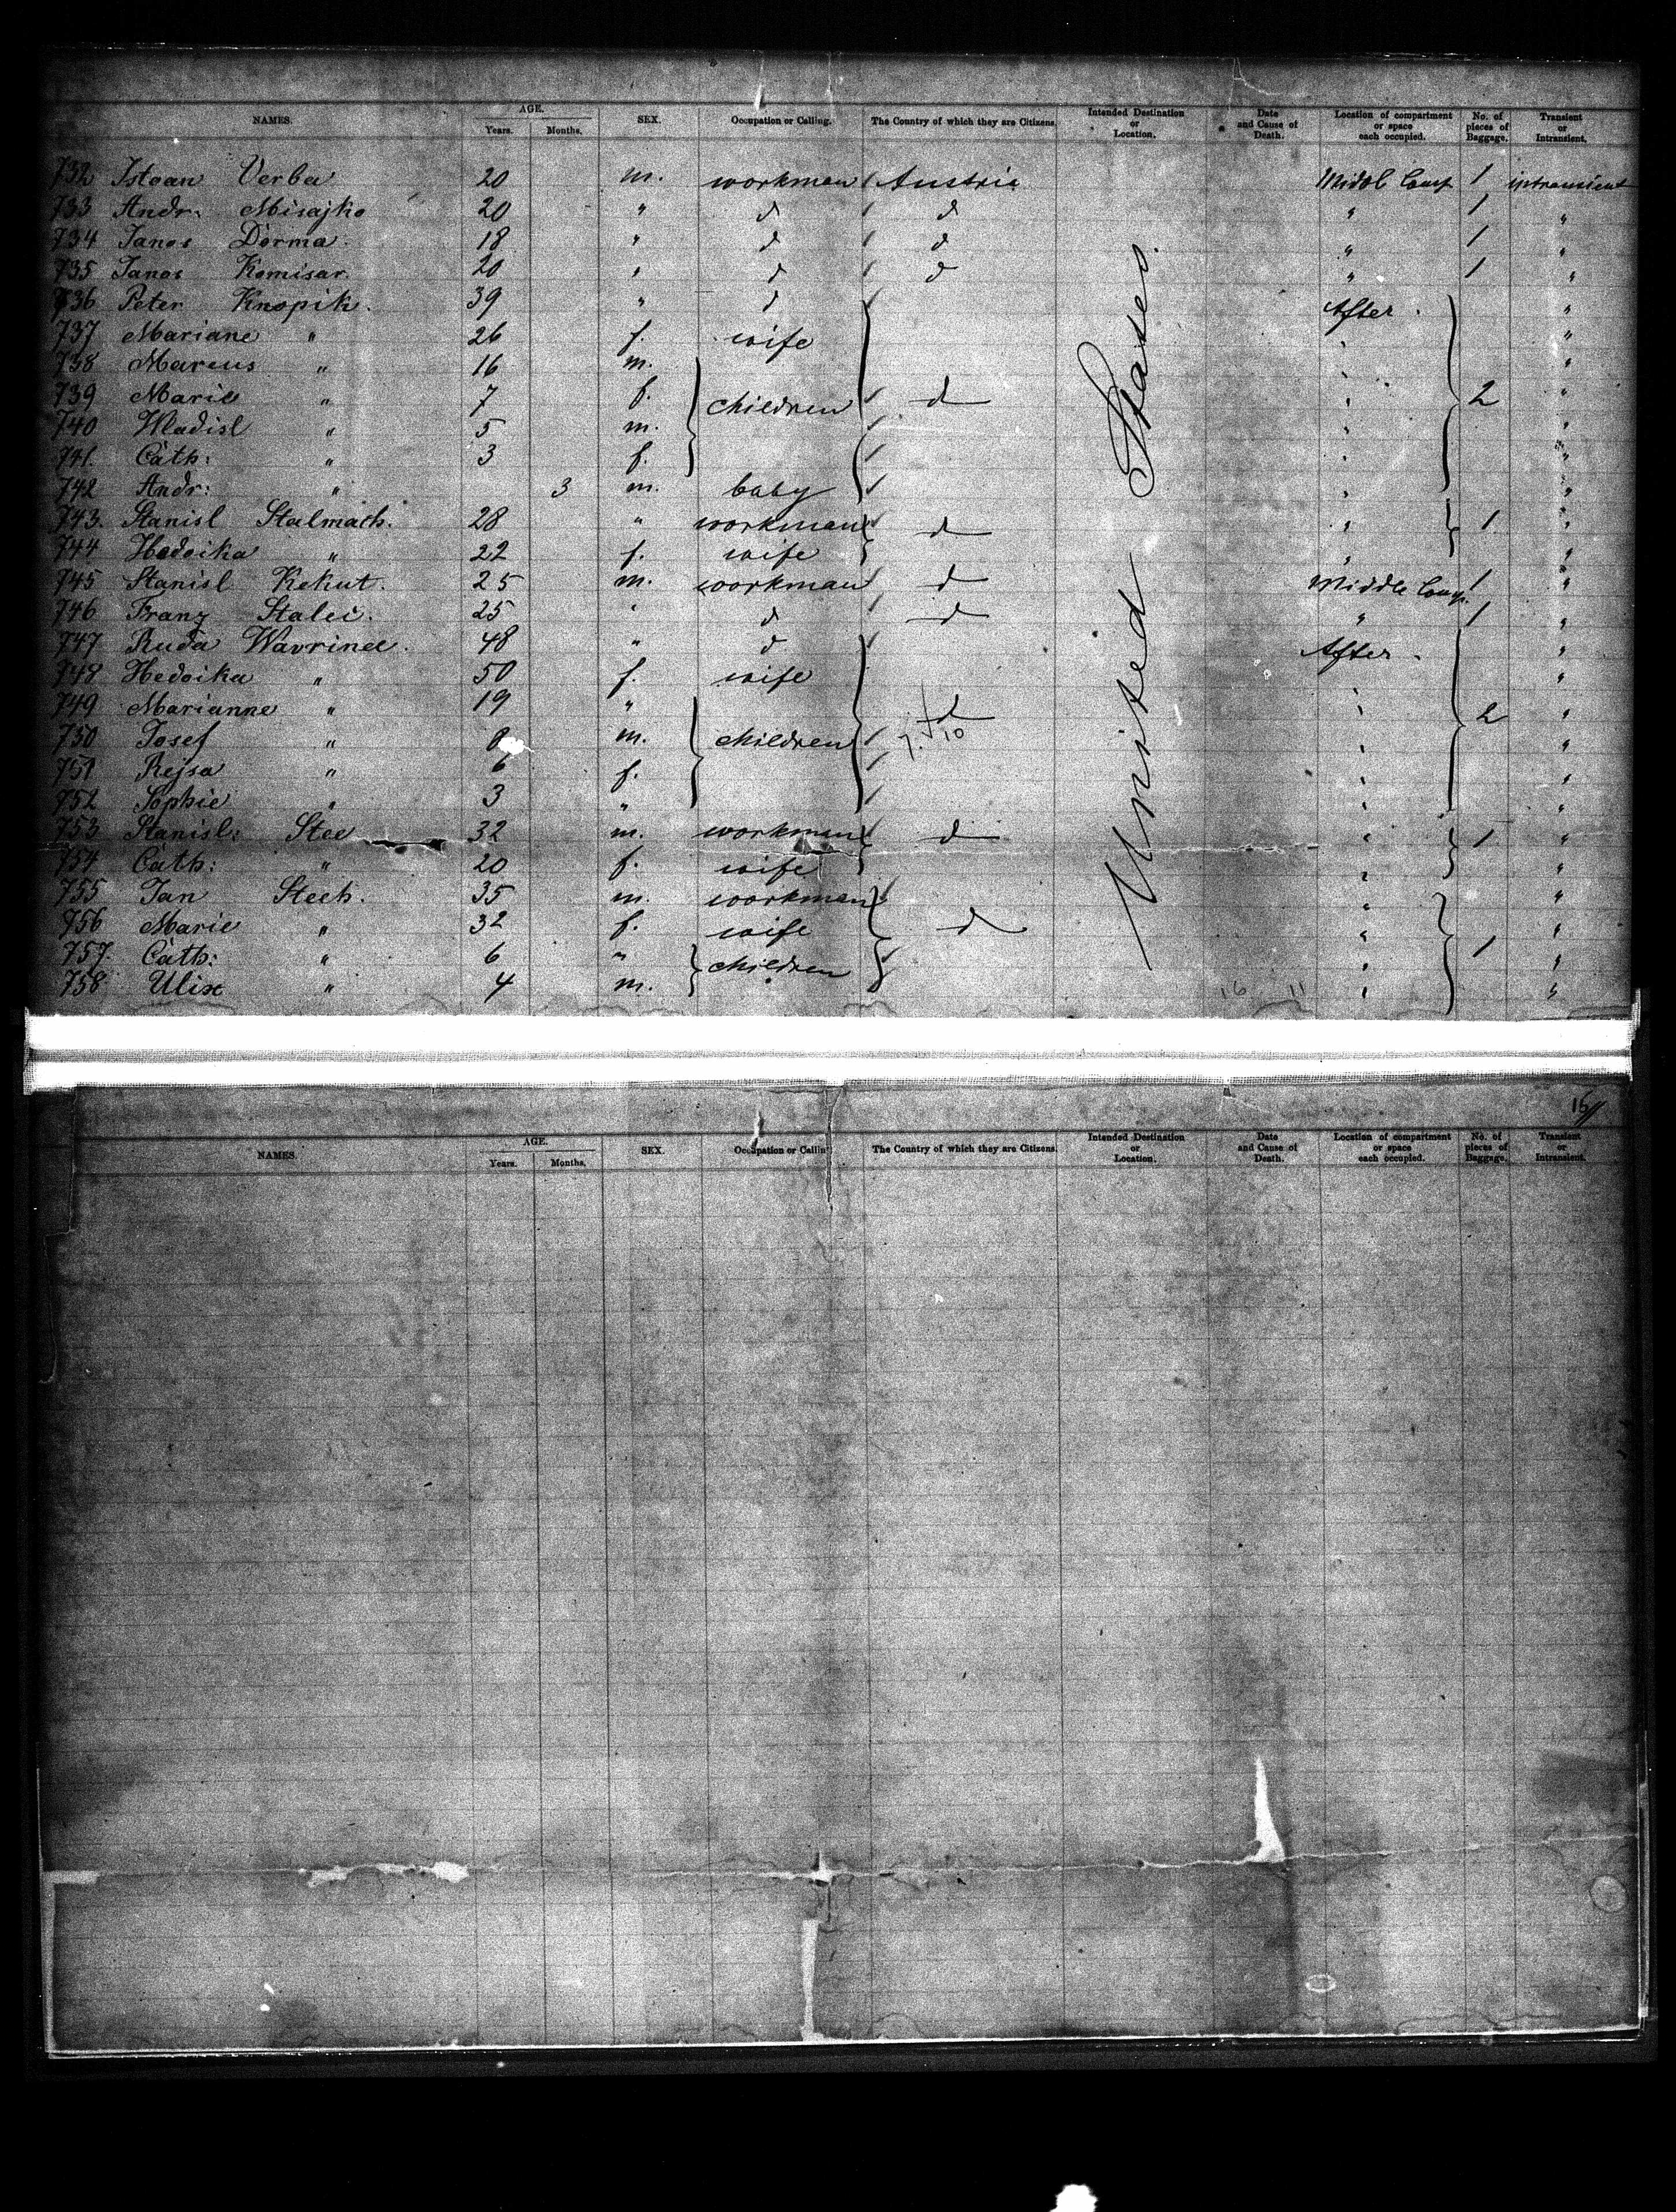 NAMES. AGE. Years. Months. SEX. Occupation or Calling. The Country of which they are Citizens. Intended Destination or Location. Date and Cause of Death. Location of compartment or space each occupied. No. of pieces of Baggage. Transient or Intransient.
732 Istvan Verba 20 m. workman Austria Middl Comp 1 intransient
733 Andr. Misajko 20 " d d " 1 "
734 Janos Dorma. 18 " d d " 1 "
735 Janos Komisar. 20 " d d " 1 "
736 Peter Knopik. 39 " d After. "
737 Mariane " 26 f. wife " "
738 Marcus " 16 m. " "
739 Marie " 7 f. children d " 2 "
740 Wladisl " 5 m. " "
741. Cath: " 3 f. " "
742 Andr: " 3 m. baby " "
743. Stanisl Stalmach. 28 " workman d " 1 "
744 Hedvika " 22 f. wife " "
745 Stanisl Kekut. 25 m. workman d Middle Comp. 1 "
746 Franz Stalei. 25 " d d " 1 "
747 Ruda Wavrinec. 48 " d After. "
748 Hedvika " 50 f. wife "
749 Marianne " 19 " d " 2 "
750 Josef " m. children 7. 10 " "
751 Rejsa " 6 f. " "
752 Sophie " 3 " " "
753 Stanisl: Stec 32 m. workman d " 1 "
754 Cath: " 20 f. wife " "
755 Jan Stech. 35 m. workman " "
756 Marie " 32 f. wife d " "
757. Cath: " 6 " children " 1 "
758 Ulix " 4 m. 16 11 " "
United States.
NAMES. AGE. Years. Months. SEX. Occupation or Calling. The Country of which they are Citizens. Intended Destination or Location. Date and Cause of Death. Location of compartment or space each occupied. No. of pieces of Baggage. Transient or Intransient.